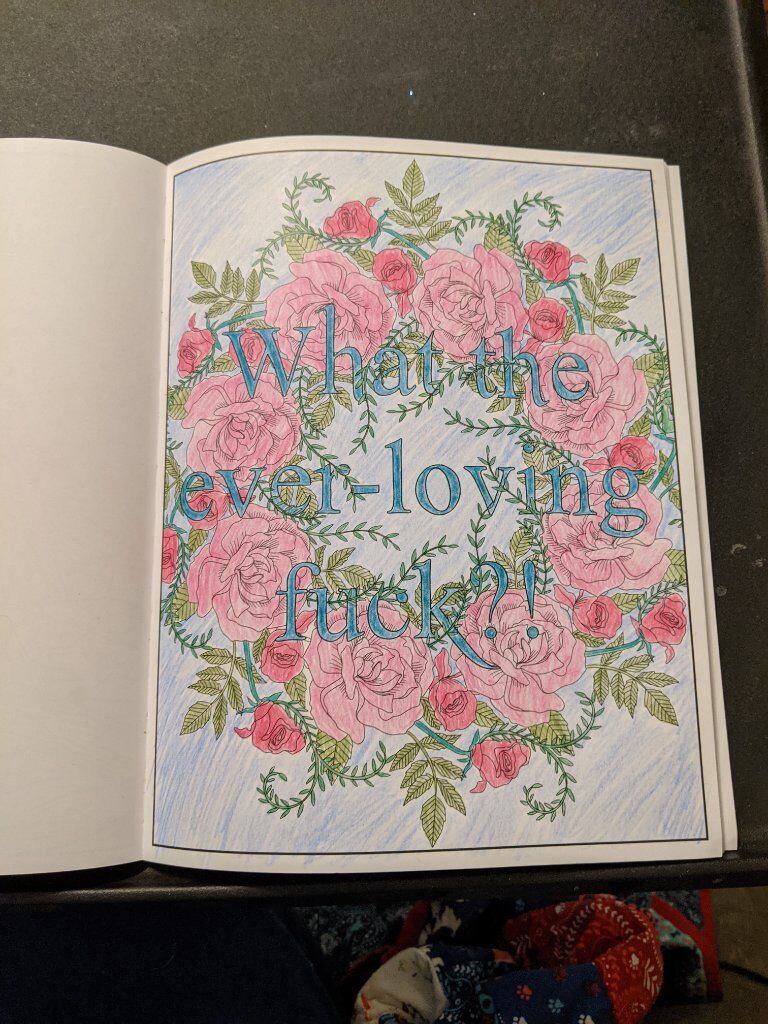 What the
ever-loving
fuck?!